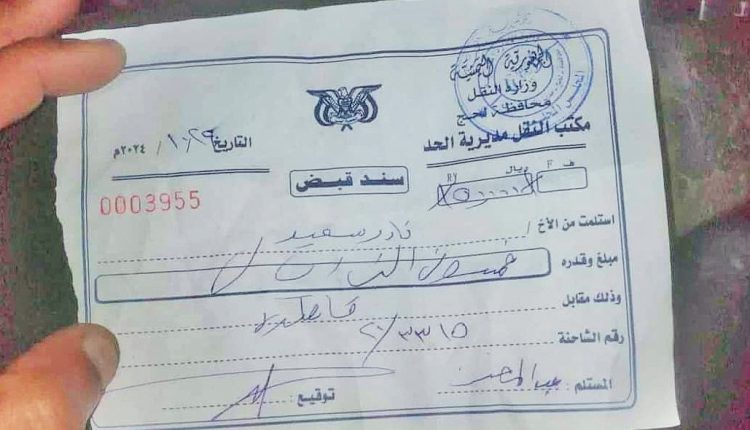 الجمهورية اليمنية
وزارة النقل
محافظة لحج
مكتب النقل مديرية الحد
التاريخ ٢٩ / ١٠ / ٢٠٢٤م
سند قبض
ف F ريال RY
0003955
استلمت من الأخ / نادر سعيد
مبلغ وقدره خمسون الف ريال
وذلك مقابل
رقم الشاحنة ٣٣١٥ / ٢
المستلم : عبدالرحمن
توقيع :